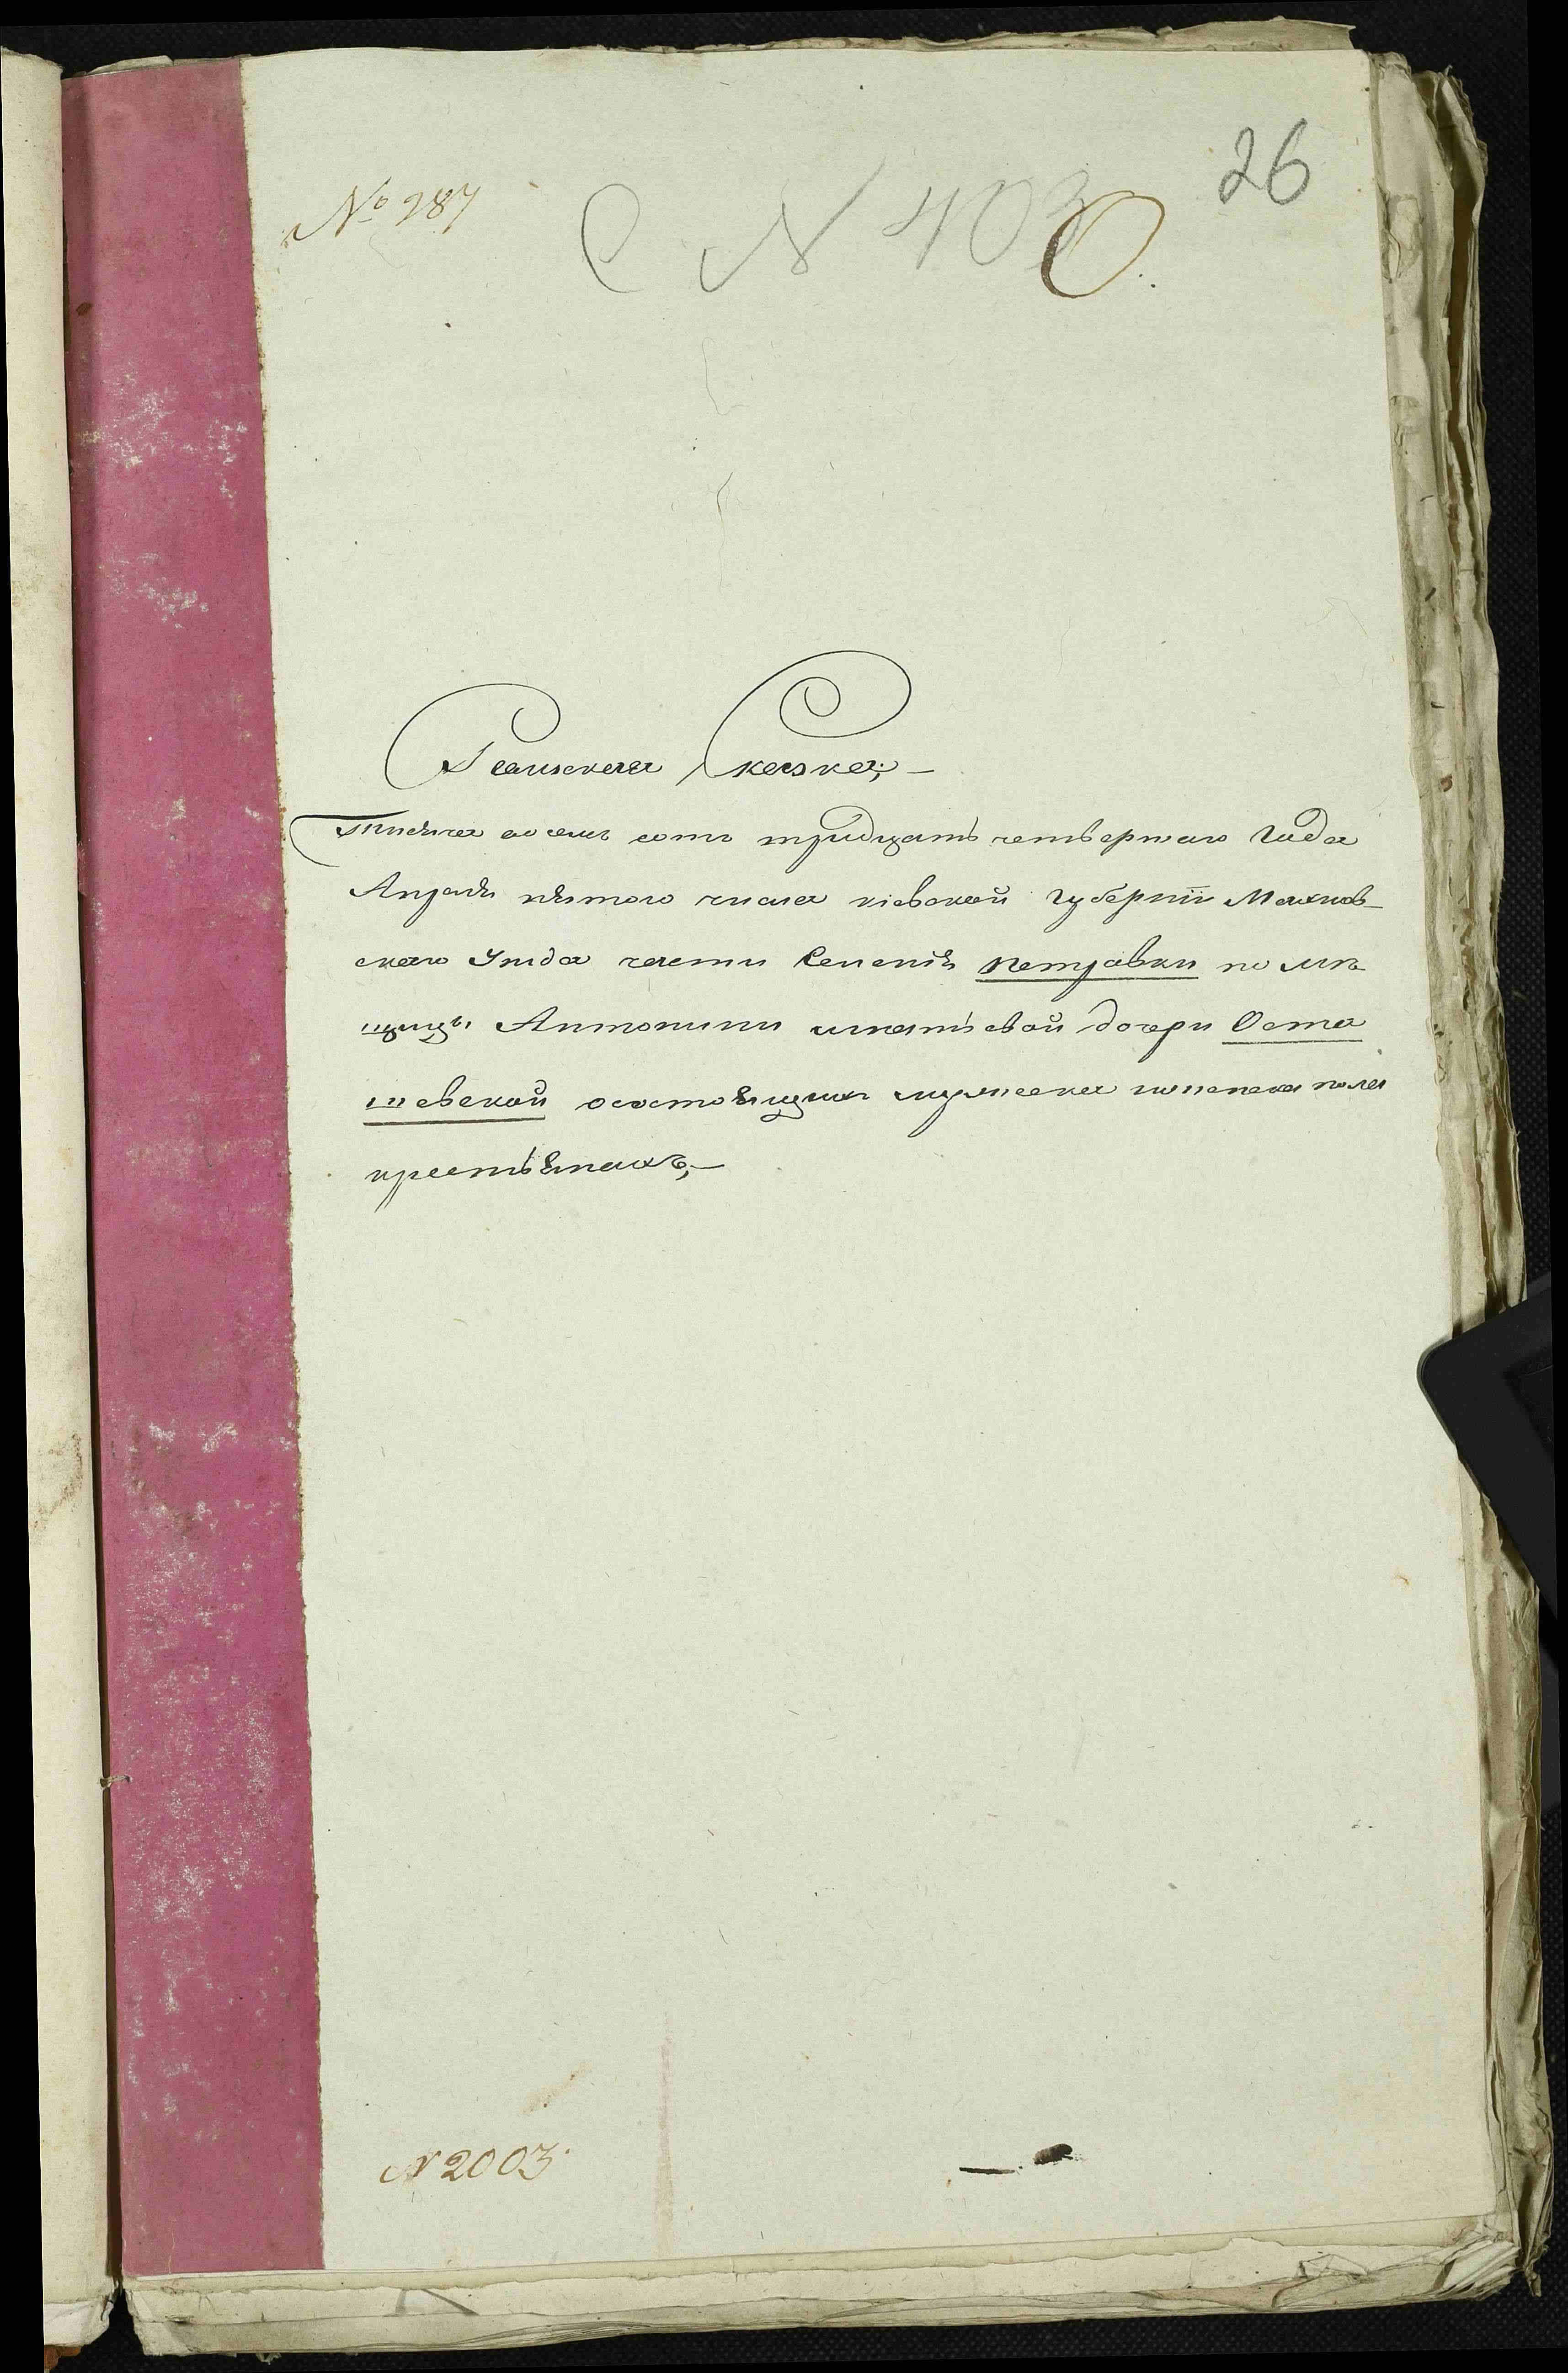 26
№ 287
N 403
Ревизская Сказка,—
Тысяча восемь сотъ тридцать четвертаго Года
Апреля пятого числа кіевской Губерніи Махнов-
скаго уезда части Селенія петравки поме
щицы Антонини игнатьевой дочери Оста
шевской осостоящихъ мужеска иженска пола
крестьянахъ,—
N 2003